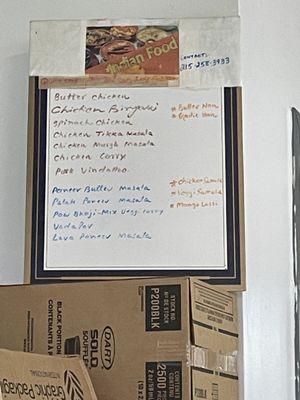 Indian Food
CONTACT:
315-258-3933
Butter Chicken
Chicken Biryani
Spinach Chicken
Chicken Tikka Masala
Chicken Murgh Masala
Chicken Curry
Pork Vindaloo
Paneer Butter Masala
Palak Paneer Masala
Pow Bhaji-Mix Veg. curry
Vada Pav
Lava Paneer Masala
* Butter Nan
* Garlic Nan
* Chicken Samosa
* Vegi Samosa
* Mango Lassi
BLACK PORTION
SOLO
DART
STOCK NO
Nº DE STOCK
P200BLK
CONTENTS
CONTENU
2500
Graphic Packaging
INTERNATIONAL